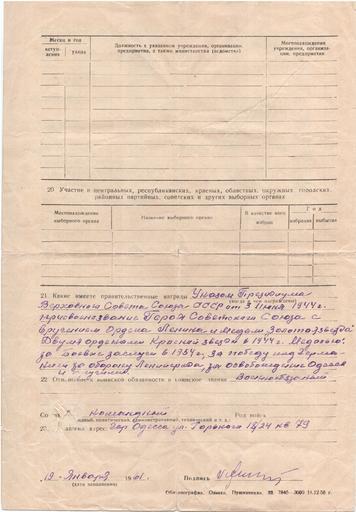 Месяц и год
вступ-
ления
ухода
Должность с указанием учреждения, организации,
предприятия, а также министерства (ведомства)
Местонахождение
учреждения, организа-
ции, предприятия
20. Участие в центральных, республиканских, краевых, областных, окружных, городских,
районных партийных, советских и других выборных органах
Местонахождение
выборного органа
Название выборного органа
В качестве кого
избран
Год
избрания
выбытия
21. Какие имеете правительственные награды Указом Президиума
(когда и чем награждены)
Верховного Совета Союза СССР от 3 июня 1944 г.
присвоено звание Герой Советского Союза с
вручением Ордена Ленина и Медали Золотая звезда
Двумя орденами Красной звезды в 1944 г. Медалью:
за боевые заслуги в 1954 г, за победу над Герма-
нией за оборону Ленинграда, за освобождение Одессы
22. Отношение к воинской обязанности и воинское звание Военнообязанный
Состав командный Род войск
(командный, политический, административный, технический и т. д.)
23. адрес гор Одесса ул. Горького 18/24 кв 79
19 Января 1961 г.
(дата заполнения)
Подпись
Облполиграфиз. Одесса, Пушкинская, 32